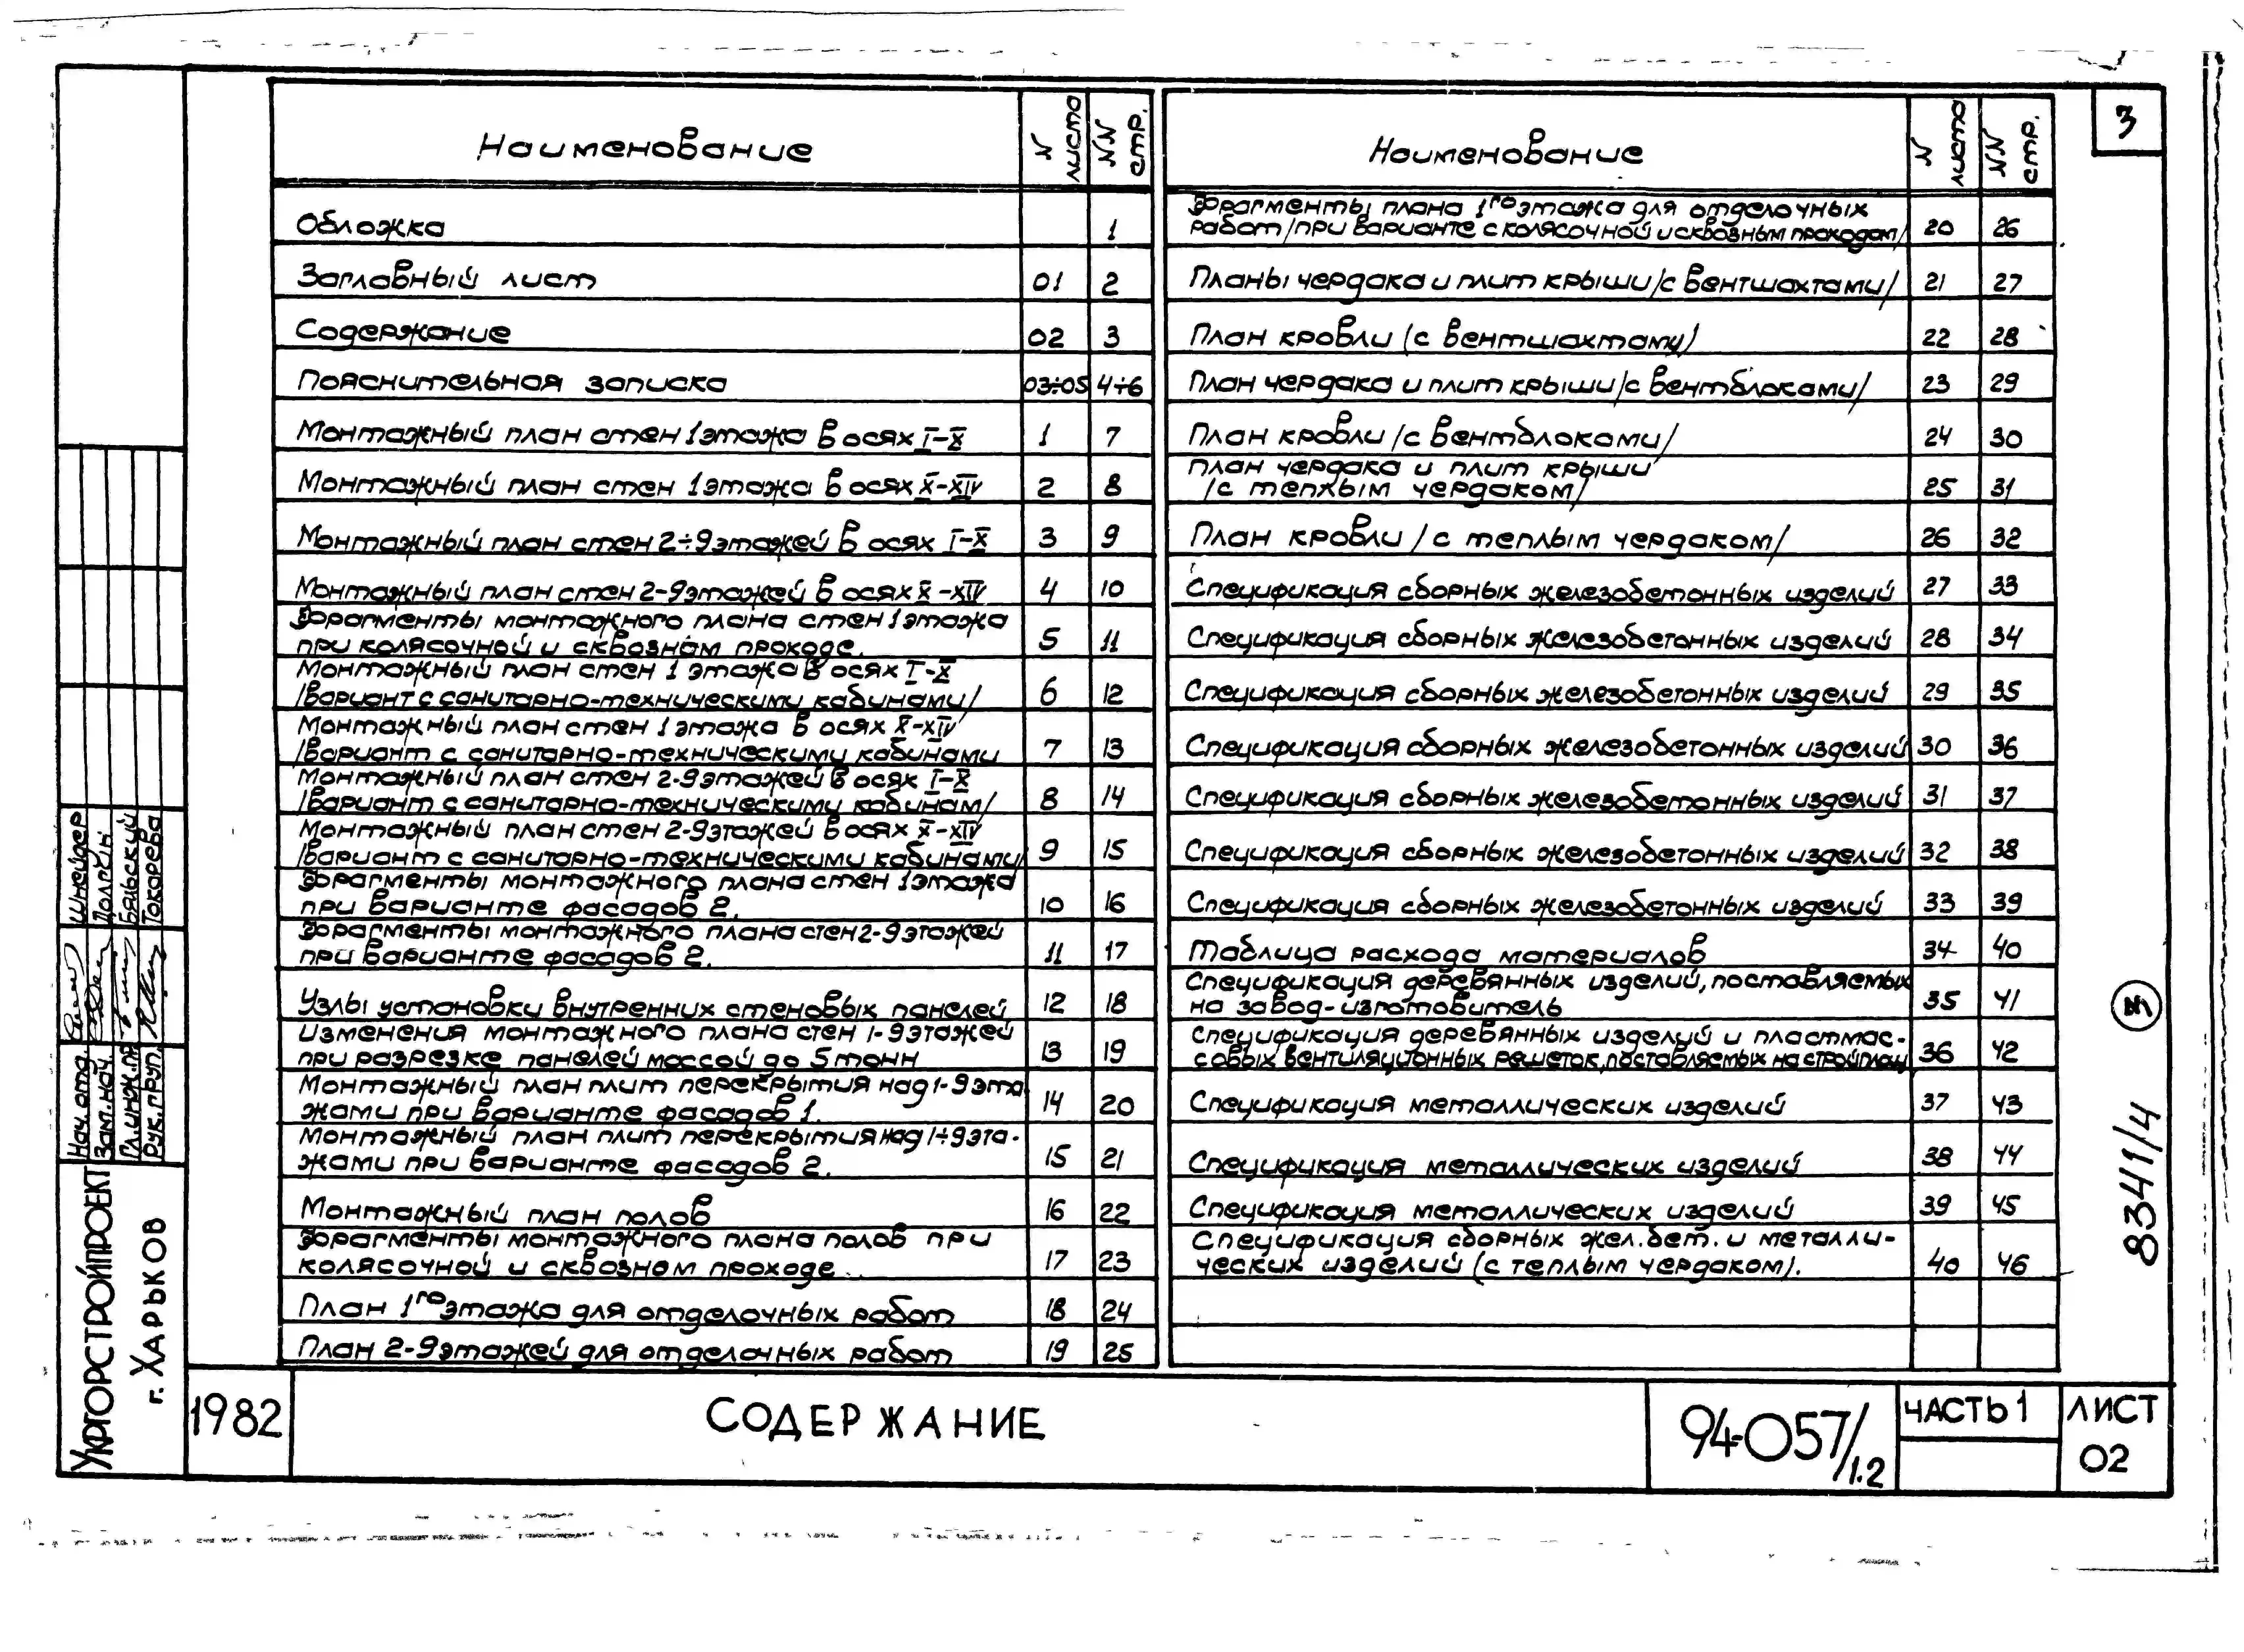 3
Наименование
N листа
NN стр.
Обложка 1
Заглавный лист 01 2
Содержание 02 3
Пояснительная записка 03÷05 4÷6
Монтажный план стен 1 этажа в осях I-X 1 7
Монтажный план стен 1 этажа в осях X-XIV 2 8
Монтажный план стен 2÷9 этажей в осях I-X 3 9
Монтажный план стен 2-9 этажей в осях X-XIV 4 10
Фрагменты монтажного плана стен 1 этажа
при колясочной и сквозном проходе. 5 11
Монтажный план стен 1 этажа в осях I-X
/вариант с санитарно-техническими кабинами/ 6 12
Монтажный план стен 1 этажа в осях X-XIV
/вариант с санитарно-техническими кабинами 7 13
Монтажный план стен 2-9 этажей в осях I-X
/вариант с санитарно-техническими кабинам/ 8 14
Монтажный план стен 2-9 этажей в осях X-XIV
/вариант с санитарно-техническими кабинами/ 9 15
Фрагменты монтажного плана стен 1 этажа
при варианте фасадов 2. 10 16
Фрагменты монтажного плана стен 2-9 этажей
при варианте фасадов 2. 11 17
Узлы установки внутренних стеновых панелей 12 18
Изменения монтажного плана стен 1-9 этажей
при разрезке панелей массой до 5 тонн 13 19
Монтажный план плит перекрытия над 1-9 эта
жами при варианте фасадов 1. 14 20
Монтажный план плит перекрытия над 1÷9 эта-
жами при варианте фасадов 2. 15 21
Монтажный план полов 16 22
Фрагменты монтажного плана полов при
колясочной и сквозном проходе. 17 23
План 1го этажа для отделочных работ 18 24
План 2-9 этажей для отделочных работ 19 25
Наименование
N листа
NN стр.
Фрагменты плана 1го этажа для отделочных
работ /при варианте с колясочной и сквозным проходом/ 20 26
Планы чердака и плит крыши /с вентшахтами/ 21 27
План кровли (с вентшахтами) 22 28
План чердака и плит крыши /с вентблоками/ 23 29
План кровли /с вентблоками/ 24 30
План чердака и плит крыши
/с теплым чердаком/ 25 31
План кровли /с теплым чердаком/ 26 32
Спецификация сборных железобетонных изделий 27 33
Спецификация сборных железобетонных изделий 28 34
Спецификация сборных железобетонных изделий 29 35
Спецификация сборных железобетонных изделий 30 36
Спецификация сборных железобетонных изделий 31 37
Спецификация сборных железобетонных изделий 32 38
Спецификация сборных железобетонных изделий 33 39
Таблица расхода материалов 34 40
Спецификация деревянных изделий, поставляемых
на завод-изготовитель 35 41
Спецификация деревянных изделий и пластмас-
совых вентиляционных решеток, поставляемых на стройплощ 36 42
Спецификация металлических изделий 37 43
Спецификация металлических изделий 38 44
Спецификация металлических изделий 39 45
Спецификация сборных жел.бет. и металли-
ческих изделий (с теплым чердаком). 40 46
3
8341/4
Нач. отд. Шнейдер
Зам. нач.
Гл. инж. пр Бяльский
Рук. груп. Токарева
Укргорстройпроект
г. Харьков
1982
СОДЕРЖАНИЕ
94-057/1.2
ЧАСТЬ 1
ЛИСТ
02